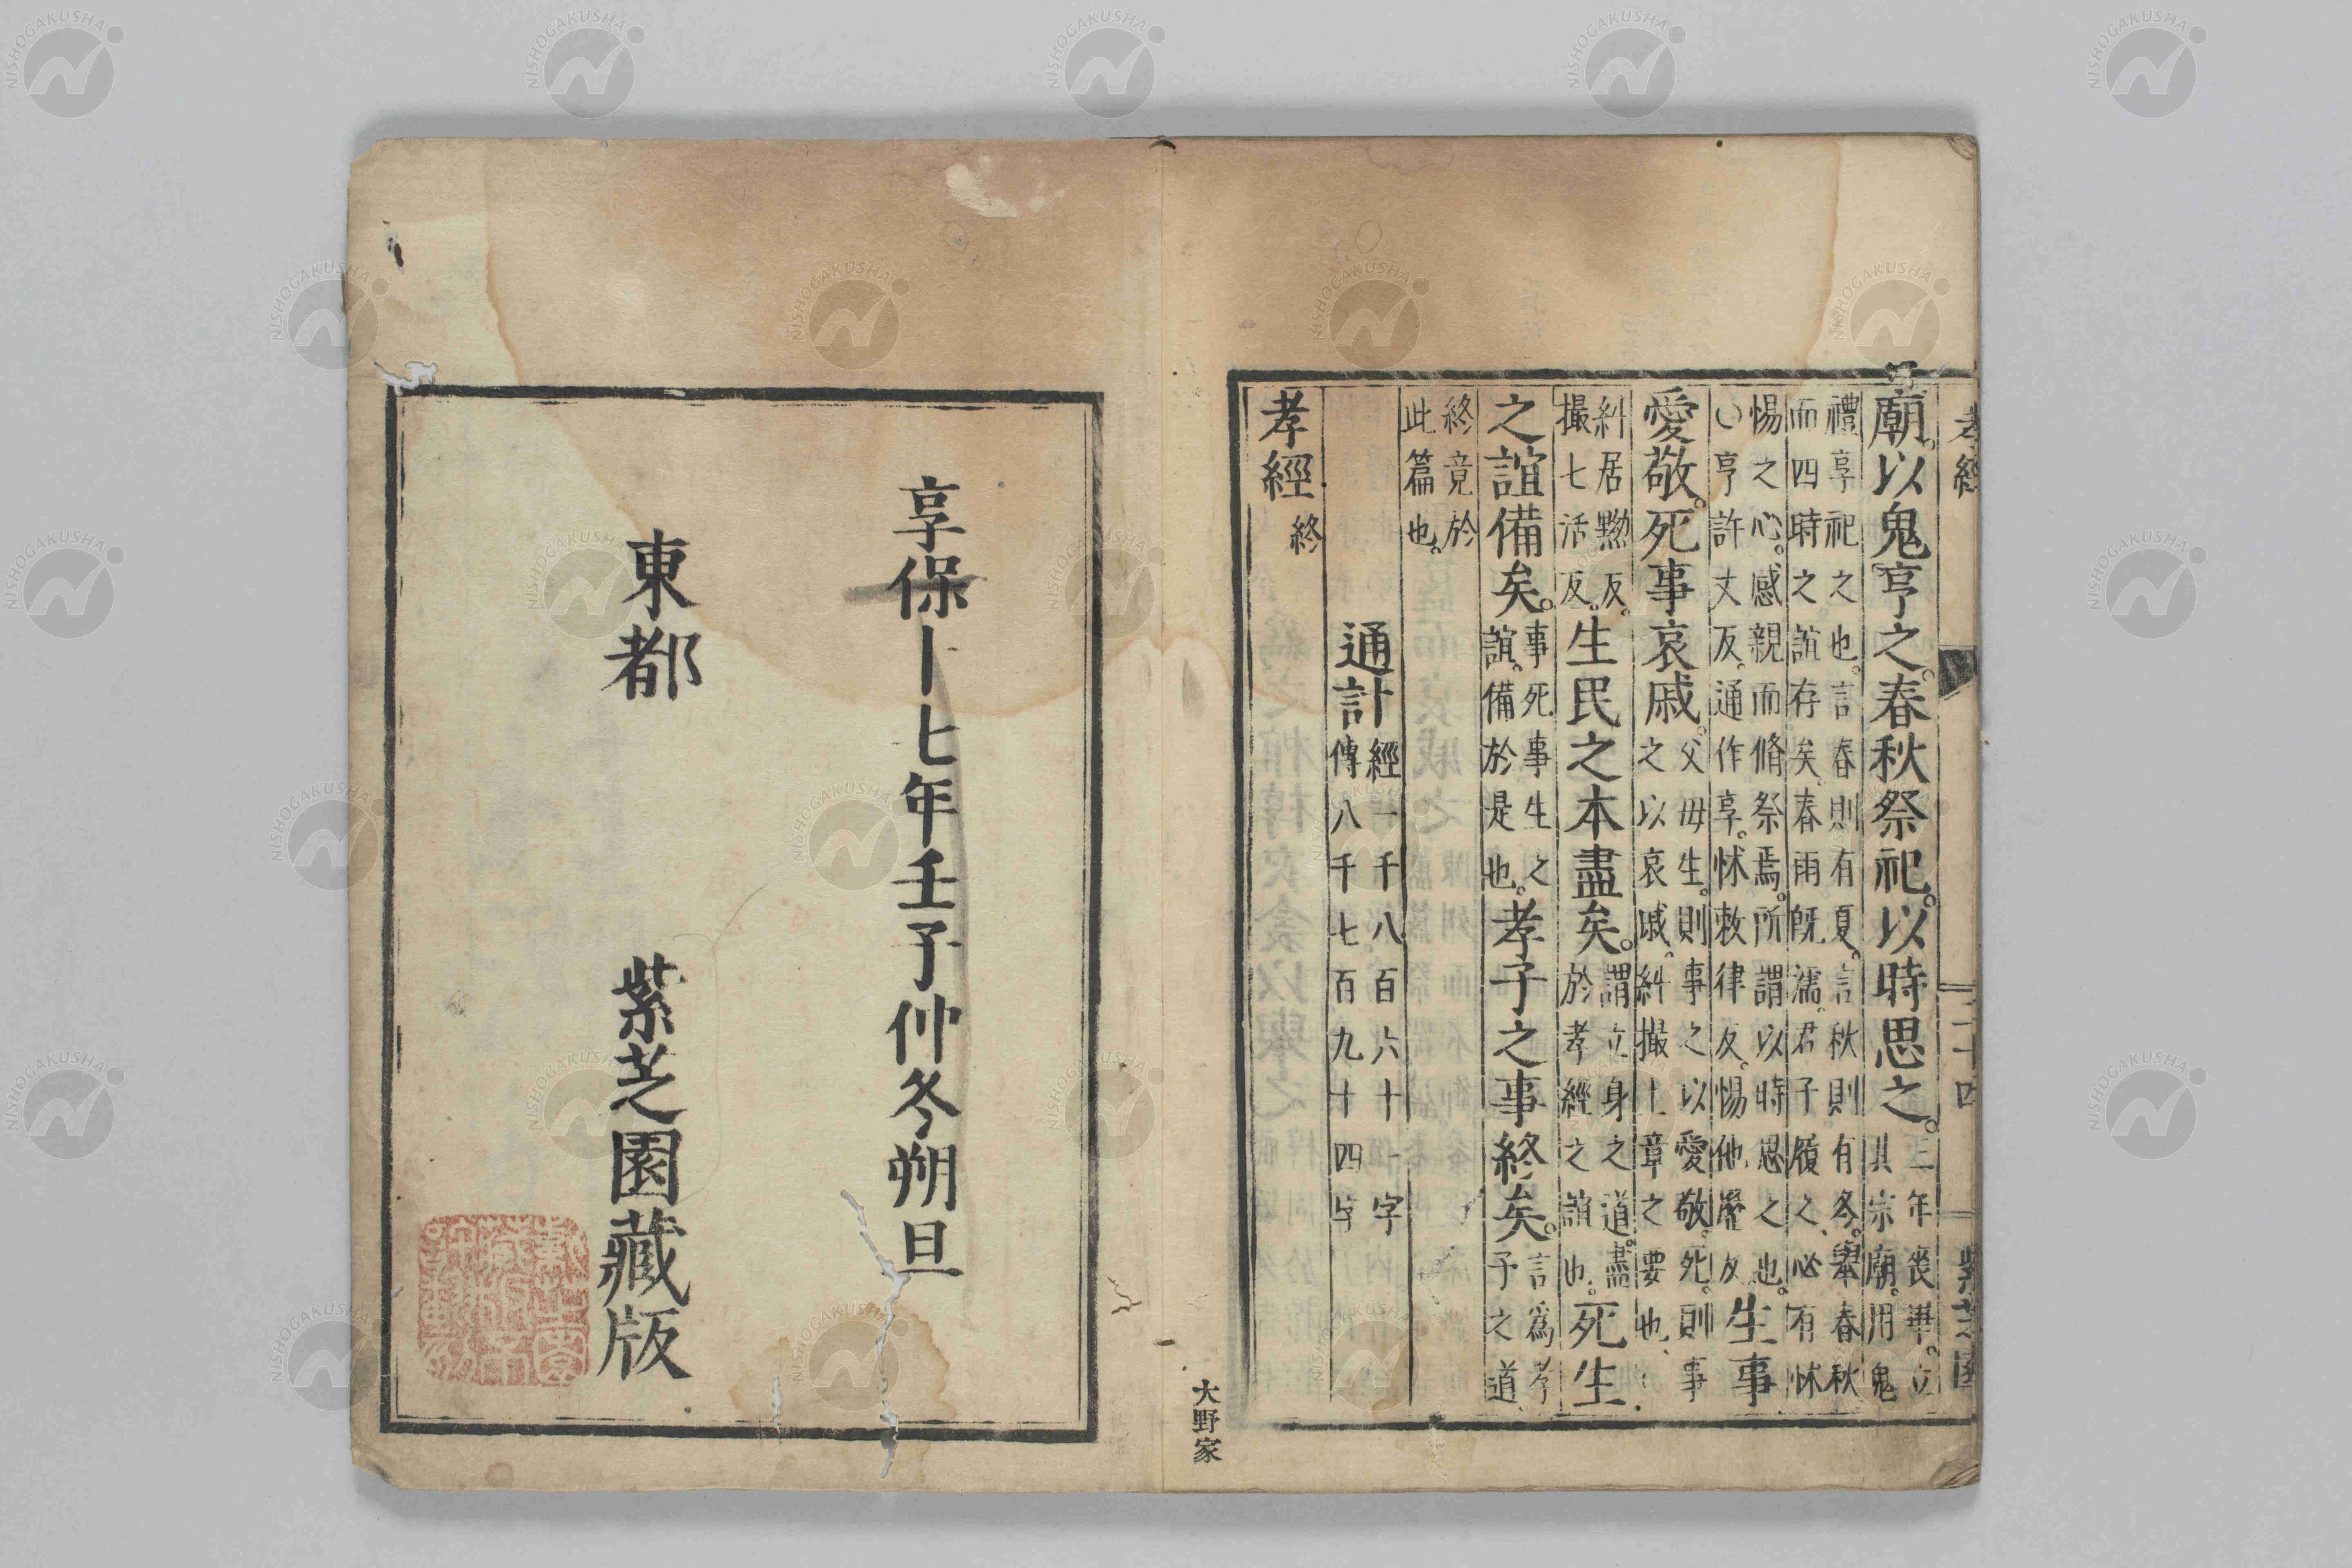 孝經 紫芝園
廟。以鬼亨之。春秋祭祀。以時思之。
三年喪畢。立
其宗廟。用鬼
禮享祀之也。言春則有夏。言秋則有冬。舉春秋
而四時之誼存矣。春雨既濡。君子履之、必有怵
惕之心。感親而脩祭焉。所謂以時思之也。
〇亨許丈反。通作享。怵敕律反。惕他歷反
生事
愛敬。死事哀戚。
父母生。則事之以愛敬。死。則事
之以哀戚。糾撮上章之要也、
糾居黝反。
撮七活反。
生民之本盡矣。
謂立身之道。盡
於孝經之誼也。
死生
之誼備矣。
事死事生之
誼。備於是也。
孝子之事終矣。
言爲孝
子之道
終竟於
此篇也。
通計
經一千八百六十一字
傳八千七百九十四字
孝經終
大野家
享保十七年壬子仲冬朔旦
東都 紫芝園藏版
NISHOGAKUSHA